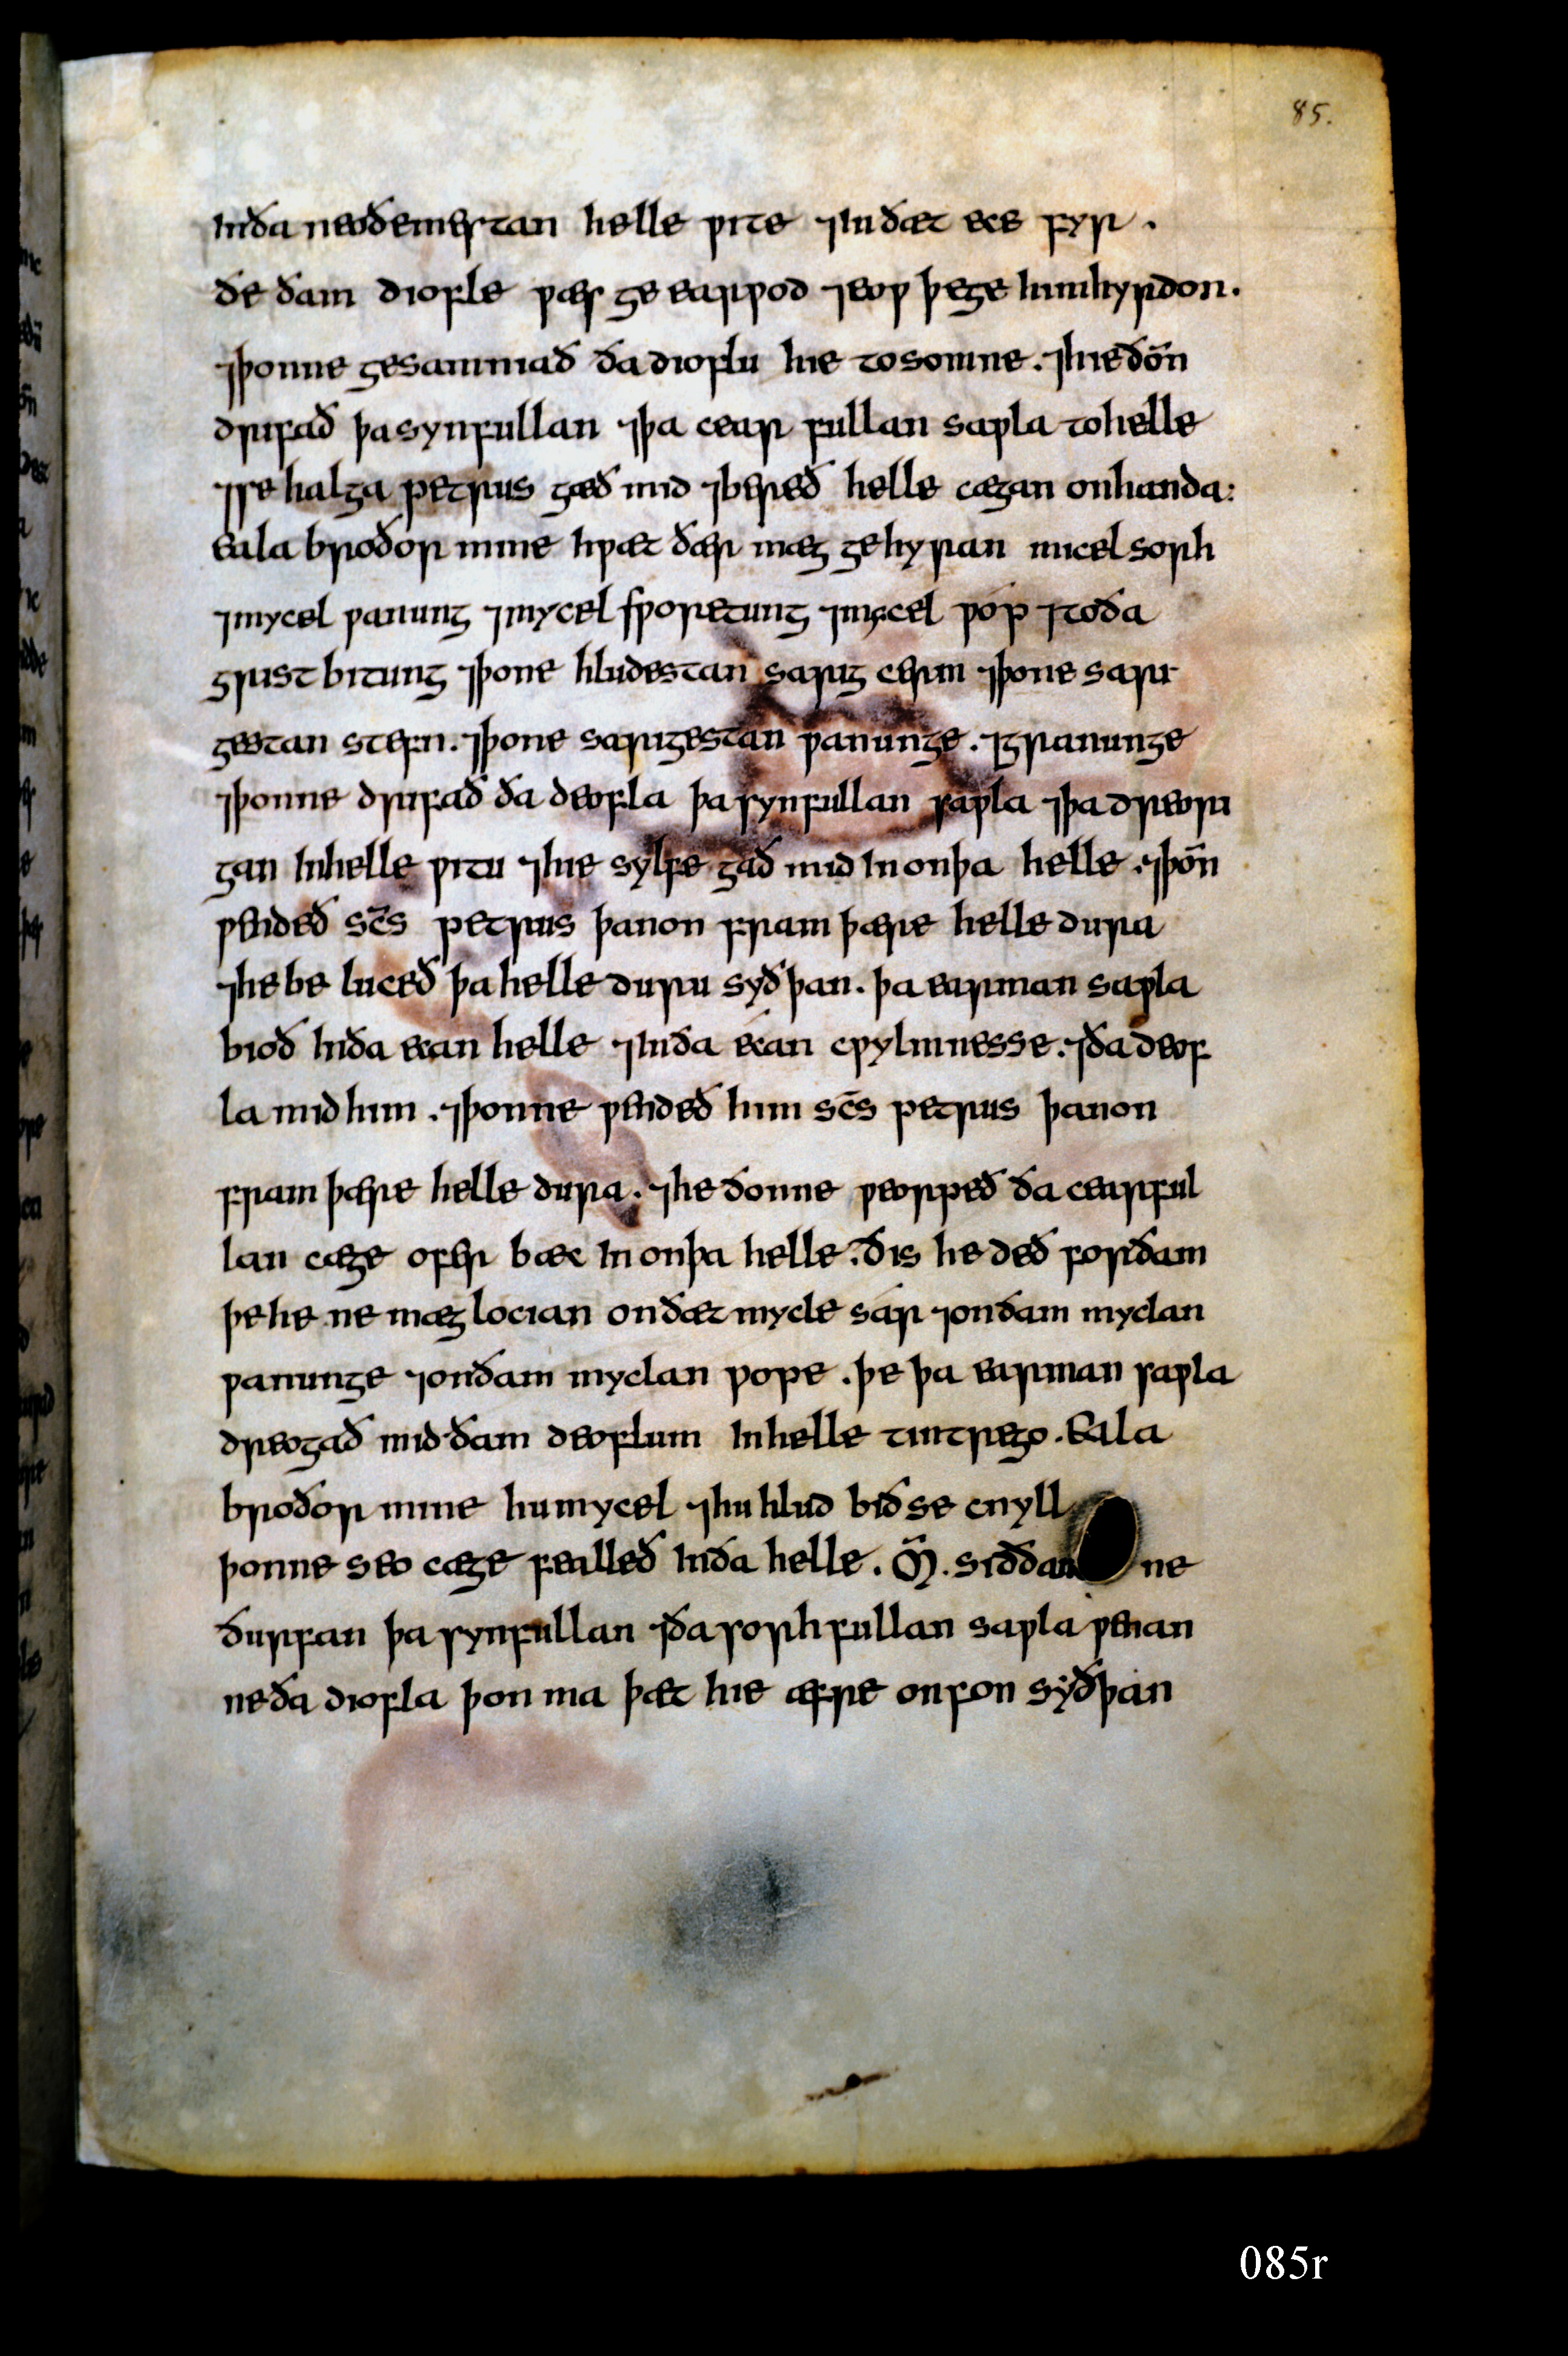 85.
in ða neoðemestan helle ƿite ⁊ in ðæt ece fyr .
ðe ðam diofle ƿæs ge earƿod ⁊ eoƿ þe ge him hyrdon.
⁊ þonne gesamniað ða dioflu hie tosomne . ⁊ hie ðoñ
drifað þa synfullan ⁊ þa cear fullan saƿla to helle
⁊ se halga petrus gæð mid ⁊ bereð helle cægan on handa:
Eala broðor mine hƿæt ðær mæg gehyran micel sorh
⁊ mycel ƿanung ⁊ mycel sƿoretung ⁊ mycel ƿóp ⁊ toða
grist bitung ⁊ þone hludestan sarig cerm ⁊ þone sari
gestan stefn . ⁊ þone sarigestan ƿanunge . ⁊ granunge
⁊ þonne drifað ða deofla þa synfullan saƿla ⁊ þa dreori
gan in helle ƿitu ⁊ hie sylfe gað mid in on þa helle . ⁊ þoñ
ƿendeð sc̄s petrus þanon fram þære helle dura
⁊ he be luceð þa helle duru syð þan . þa earman saƿla
bioð in ða ecan helle ⁊ in ða écan cƿylmnesse . ⁊ ða deof
la mid him . ⁊ þonne ƿendeð him sc̄s petrus þanon
fram þære helle dura . ⁊ he ðonne ƿeorpeð ða cearful
lan cæge ofer bæc in on þa helle . ðis he deð forðam
þe he ne mæg locian on ðæt mycle sár ⁊ on ðam myclan
ƿanunge ⁊ on ðam myclan ƿope . þe þa earman saƿla
dreogað mid ðam deoflum in helle tintrego . Eala
broðor mine hu mycel ⁊ hu hlud bið se cnyll
þonne seo cæge fealleð in ða helle . M̃ . siððan ne
ðurfan þa synfullan ⁊ ða sorh fullan saƿla ƿenan
ne ða diofla þon ma þæt hie æfre onfon syðþan
085r